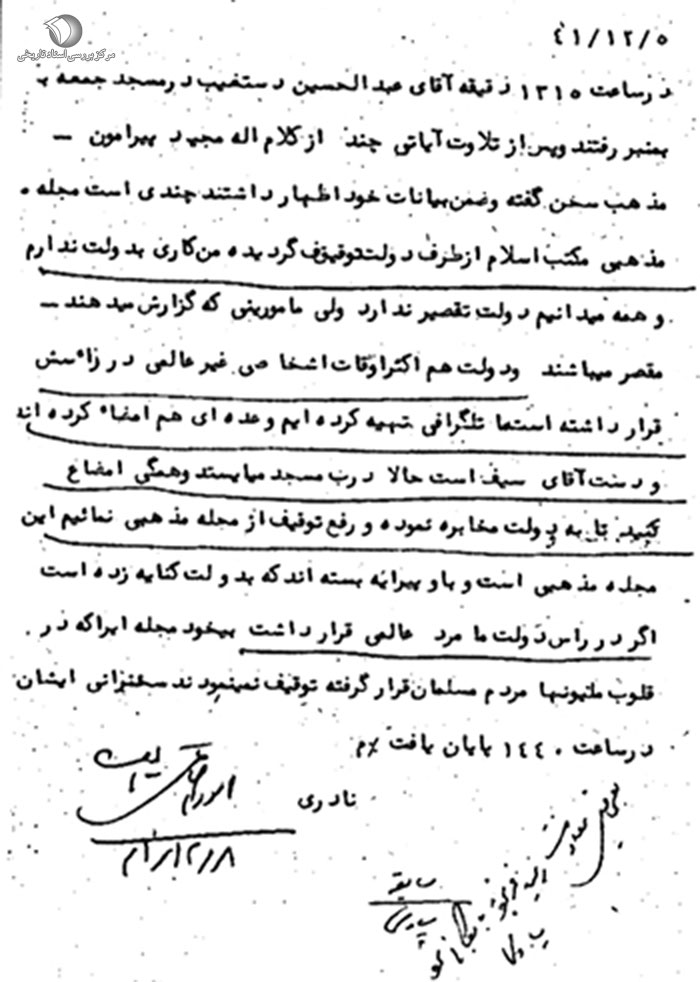 مرکز بررسی اسناد تاریخی
۴۱/۱۲/۵
در ساعت ۱۳۱۵ دقیقه آقای عبدالحسین دستغیب در مسجد جمعه به
بمنبر رفتند وپس از تلاوت آیاتی چند از کلام اله مجید پیرامون –
مذهب سخن گفته وضمن بیانات خود اظهار داشتند چندی است مجله
مذهبی مکتب اسلام از طرف دولت توقیف گردیده من کاری بدولت ندارم
و همه میدانیم دولت تقصیر ندارد ولی مامورینی که گزارش میدهند –
مقصر میباشند ودولت هم اکثر اوقات اشخاصی غیر عالمی در راسش
قرار داشته است ما تلگرافی تهیه کرده ایم وعده ای هم امضاء کرده اند
و دست آقای سیف است حالا درب مسجد میایستد وهمگی امضاع
کنید تا به دولت مخابره نموده و رفع توقیف از مجله مذهبی نمائیم این
مجله مذهبی است و باو پیرایه بسته اند که بدولت کنایه زده است
اگر در راس دولت ما مرد عالمی قرار داشت بیخود مجله ایراکه در
قلوب ملیونها مردم مسلمان قرار گرفته توقیف نمینمودند سخنرانی ایشان
در ساعت ۱۴۴۰ پایان یافت
نادری
سابقه